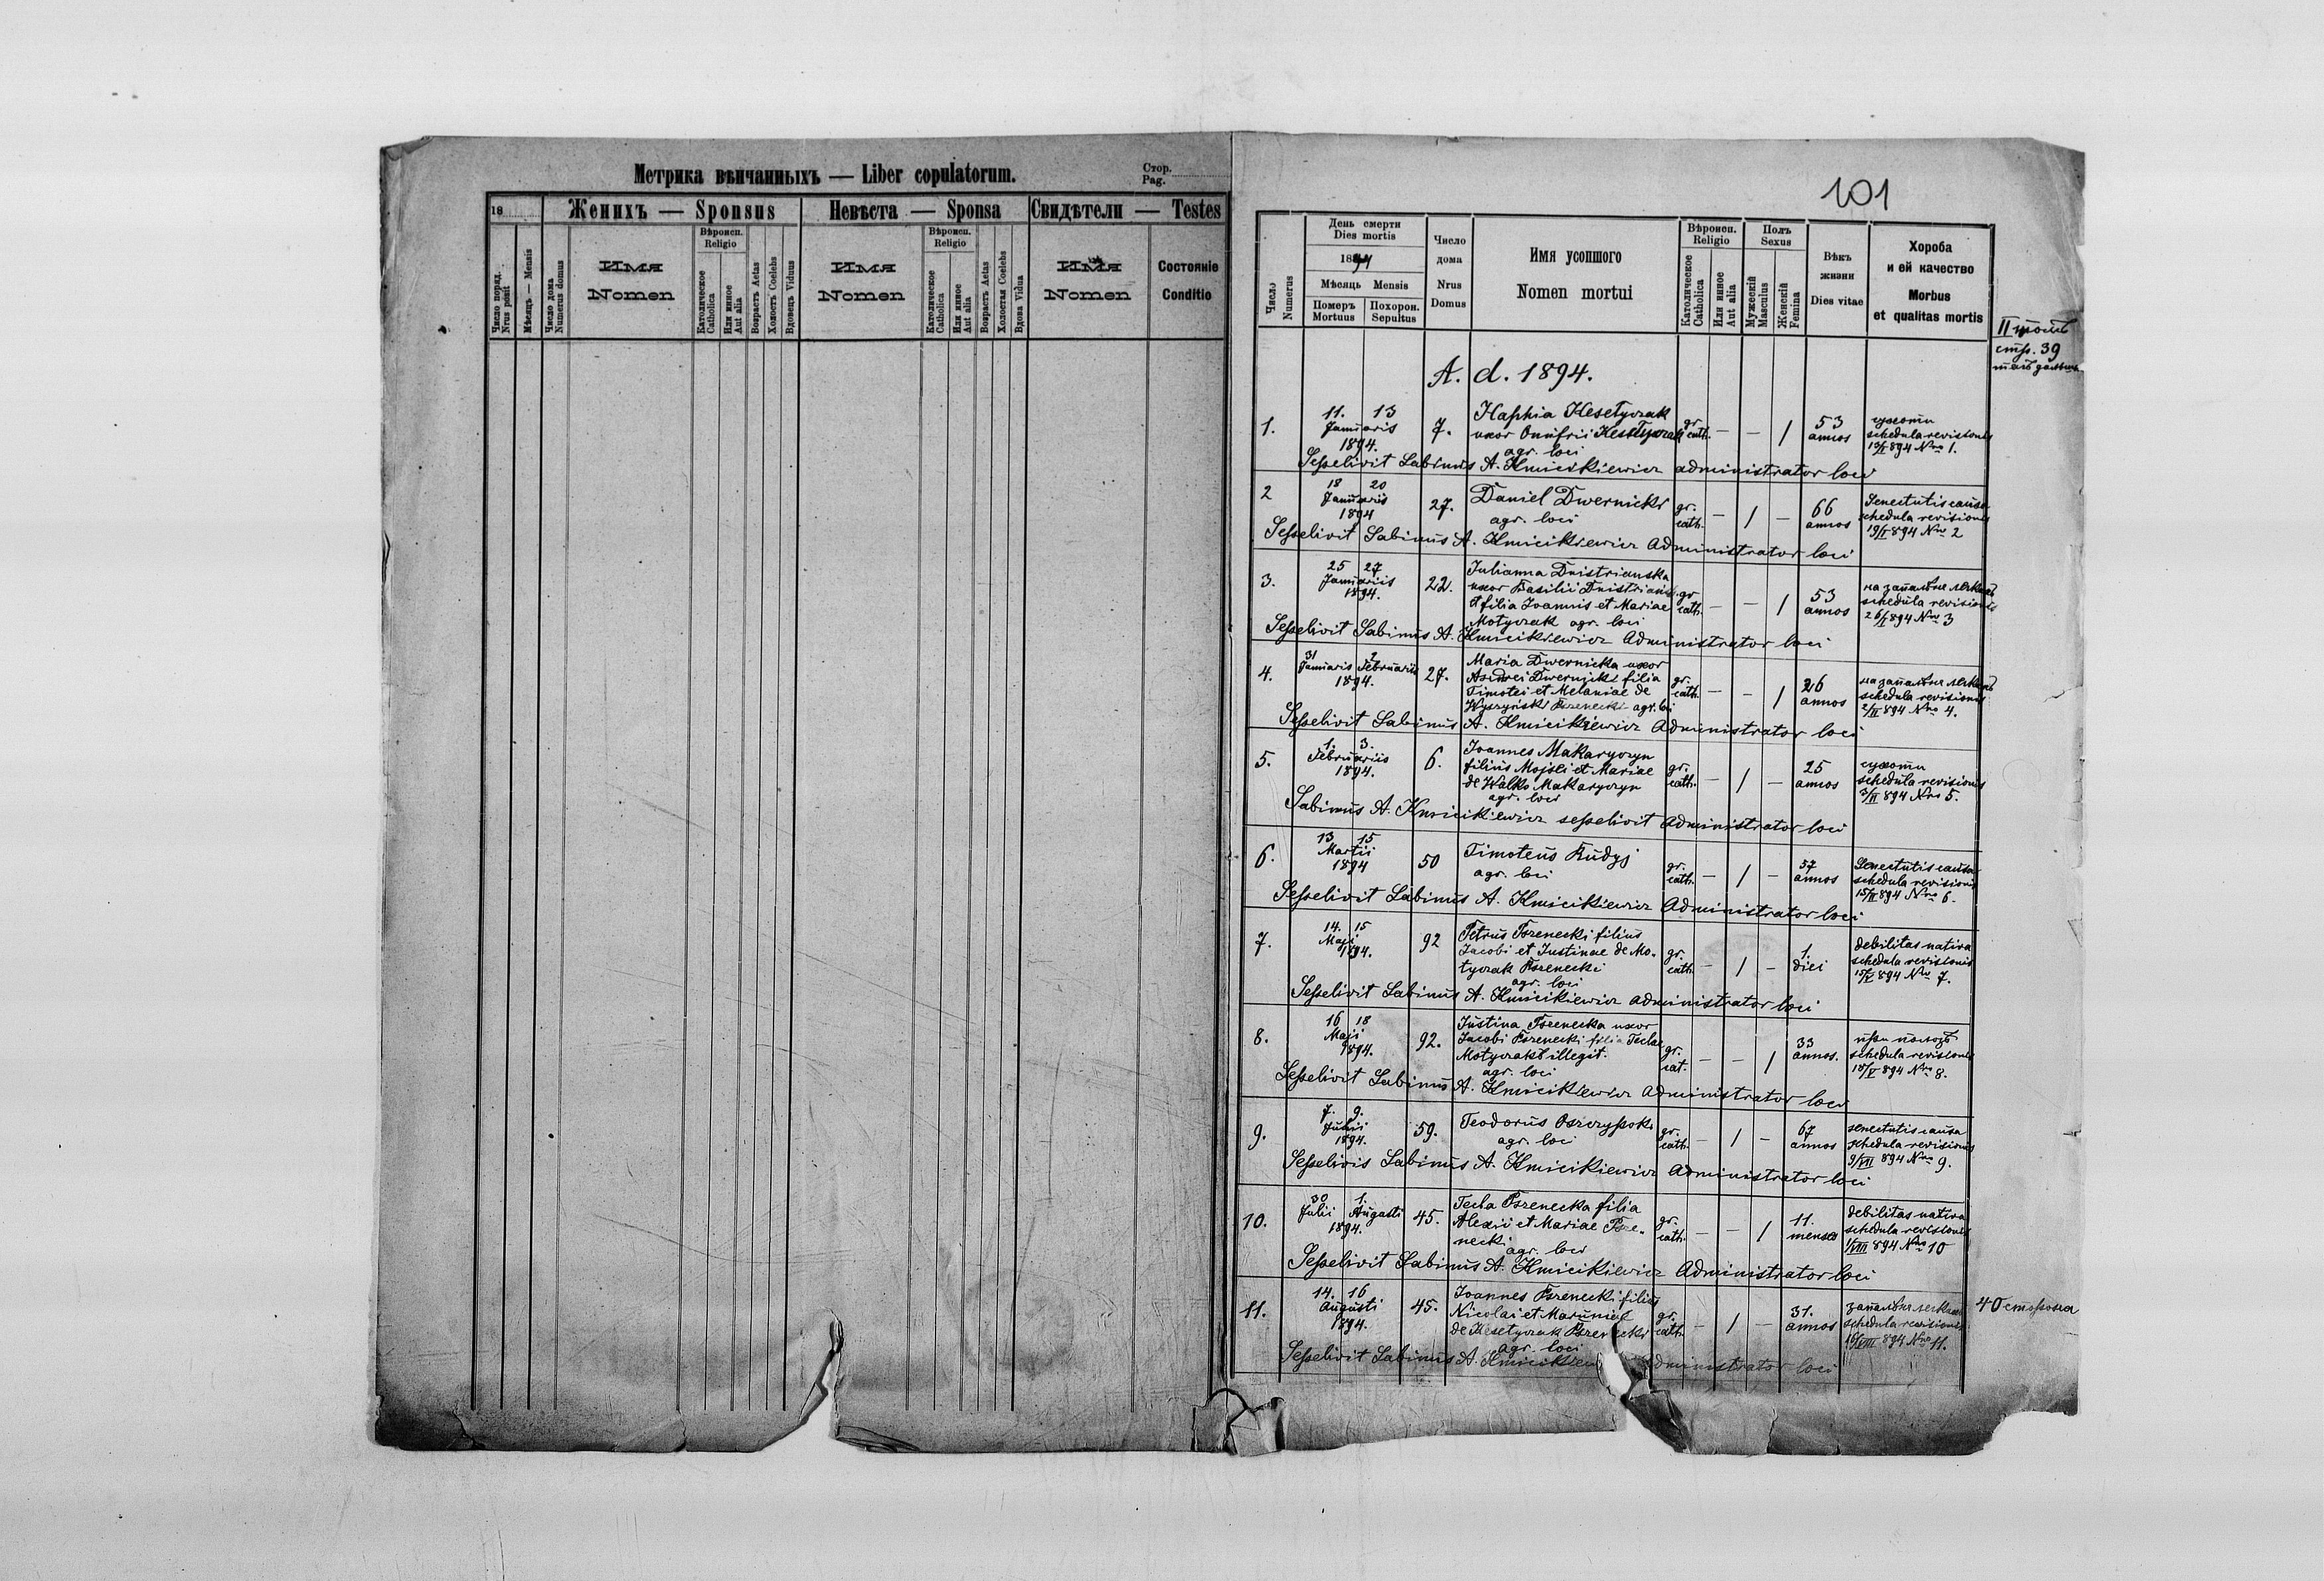 Метрика вѣнчанныхъ — Liber copulatorum.
Стор.
Pag.
18
Женихъ — Sponsus
Невѣста — Sponsa
Свидѣтели — Testes
Число поряд.
Nrus posit
Мѣсяцъ — Mensis
Число дома
Numerus domus
Имя
Nomen
Вѣроисп.
Religio
Католическое
Catholica
Или инное
Aut alia
Возрастъ Aetas
Холостъ Coelebs
Вдовецъ Viduus
Имя
Nomen
Вѣроисп.
Religio
Католическое
Catholica
Или инное
Aut alia
Возрастъ Aetas
Холостая Coelebs
Вдова Vidua
Имя
Nomen
Состояніе
Conditio
101
Число
Numerus
День смерти
Dies mortis
1894
Мѣсяць Mensis
Померъ
Mortuus
Похорон.
Sepultus
Число
дома
Nrus
Domus
Имя усопшого
Nomen mortui
Вѣроисп.
Religio
Католическое
Catholica
Или инное
Aut alia
Полъ
Sexus
Мужескій
Masculus
Женскій
Femina
Вѣкъ
жизни
Dies vitae
Хороба
и ей качество
Morbus
et qualitas mortis
II томъ
стр. 39
A. d. 1894.
1.
11. 13
Januaris
1894.
7.
Haphia Kesetyczak
uxor Onufrii Kesetyczak
agr. loci
gr.
cath.
— — /
53
annos
сухоти
schedula revisionis
13/I 894 Nro 1.
Sepelivit Sabinus A. Kmicikiewicz administrator loci
2
18 20
Januariis
1894
27.
Daniel Dwernicki
agr. loci
gr.
cath.
— / —
66
annos
Senectutis causa
schedula revisionis
19/I 894 Nro 2
Sepelivit Sabinus A. Kmicikiewicz Administrator loci
3.
25 27
Januariis
1894.
22.
Julianna Dnistrianska
uxor Basilii Dnistrianski
et filia Joannis et Mariae
Motyczak agr. loci
gr.
cath.
— — /
53
annos
на запальня легкихъ
schedula revisionis
26/I 894 Nro 3
Sepelivit Sabinus A. Kmicikiewicz Administrator loci
4.
31 2
Januaris Februariis
1894.
27.
Maria Dwernicka uxor
Andrei Dwernicki filia
Timotei et Melaniae de
Wyszyński Pszenecki agr. loci
gr.
cath.
— — /
26
annos
на запальня легкихъ
schedula revisionis
2/II 894 Nro 4.
Sepelivit Sabinus A. Kmicikiewicz Administrator loci
5.
1. 3.
Februariis
1894.
6.
Joannes Makaryczyn
filius Mojsei et Mariae
de Walko Makaryczyn
agr. loci
gr.
cath.
— / —
25
annos
сухоти
schedula revisionis
3/II 894 Nro 5.
Sabinus A. Kmicikiewicz sepelivit Administrator loci
6.
13 15
Martii
1894
50
Timoteus Rudyj
agr. loci
gr.
cath.
— / —
57
annos
Senectutis causa
schedula revisionis
15/III 894 Nro 6.
Sepelivit Sabinus A. Kmicikiewicz Administrator loci
7.
14. 15
Maji
1894.
92
Petrus Pszenecki filius
Jacobi et Justinae de Mo-
tyczak Pszenecki
agr. loci
gr.
cath.
— / —
1.
diei
debilitas nativa
schedula revisionis
15/V 894 Nro 7.
Sepelivit Sabinus A. Kmicikiewicz administrator loci
8.
16 18
Maji
1894.
92.
Justina Pszenecka uxor
Jacobi Pszenecki filia Teclae
Motyczak illegit.
agr. loci
gr.
cat.
— — /
33
annos.
при пологѣ
schedula revisionis
18/V 894 Nro 8.
Sepelivit Sabinus A. Kmicikiewicz Administrator loci
9.
7. 9.
Julii
1894.
59.
Teodorus
agr. loci
gr.
cath.
— / —
67
annos
senectutis causa
schedula revisionis
9/VII 894 Nro 9.
Sepelivis Sabinus A. Kmicikiewicz Administrator loci
10.
30 1.
Julii Augusti
1894.
45.
Tecla Pszenecka filia
Alexii et Mariae Psze-
necki
agr. loci
gr.
cath.
— — /
11.
menses
debilitas nativa
schedula revisionis
1/VIII 894 Nro 10
Sepelivit Sabinus A. Kmicikiewicz Administrator loci
11.
14. 16
Augusti
1894.
45.
Joannes Pszenecki filius
Nicolai et Maruniae
de Kesetyczak Pszenecki
agr. loci
gr.
cath.
— / —
31.
annos
запальня легкихъ
schedula revisionis
16/VIII 894 Nro 11.
40 сторона
Sepelivit Sabinus A. Kmicikiew dministrator loci